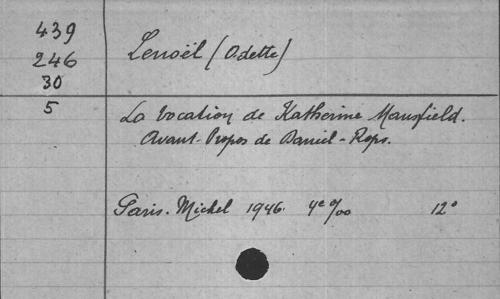 439
246
30
5
Lenoël (Odette)
La Vocation de Katherine Mansfield.
Avant-Propos de Daniel-Rops.
Paris. Michel 1946. 12°